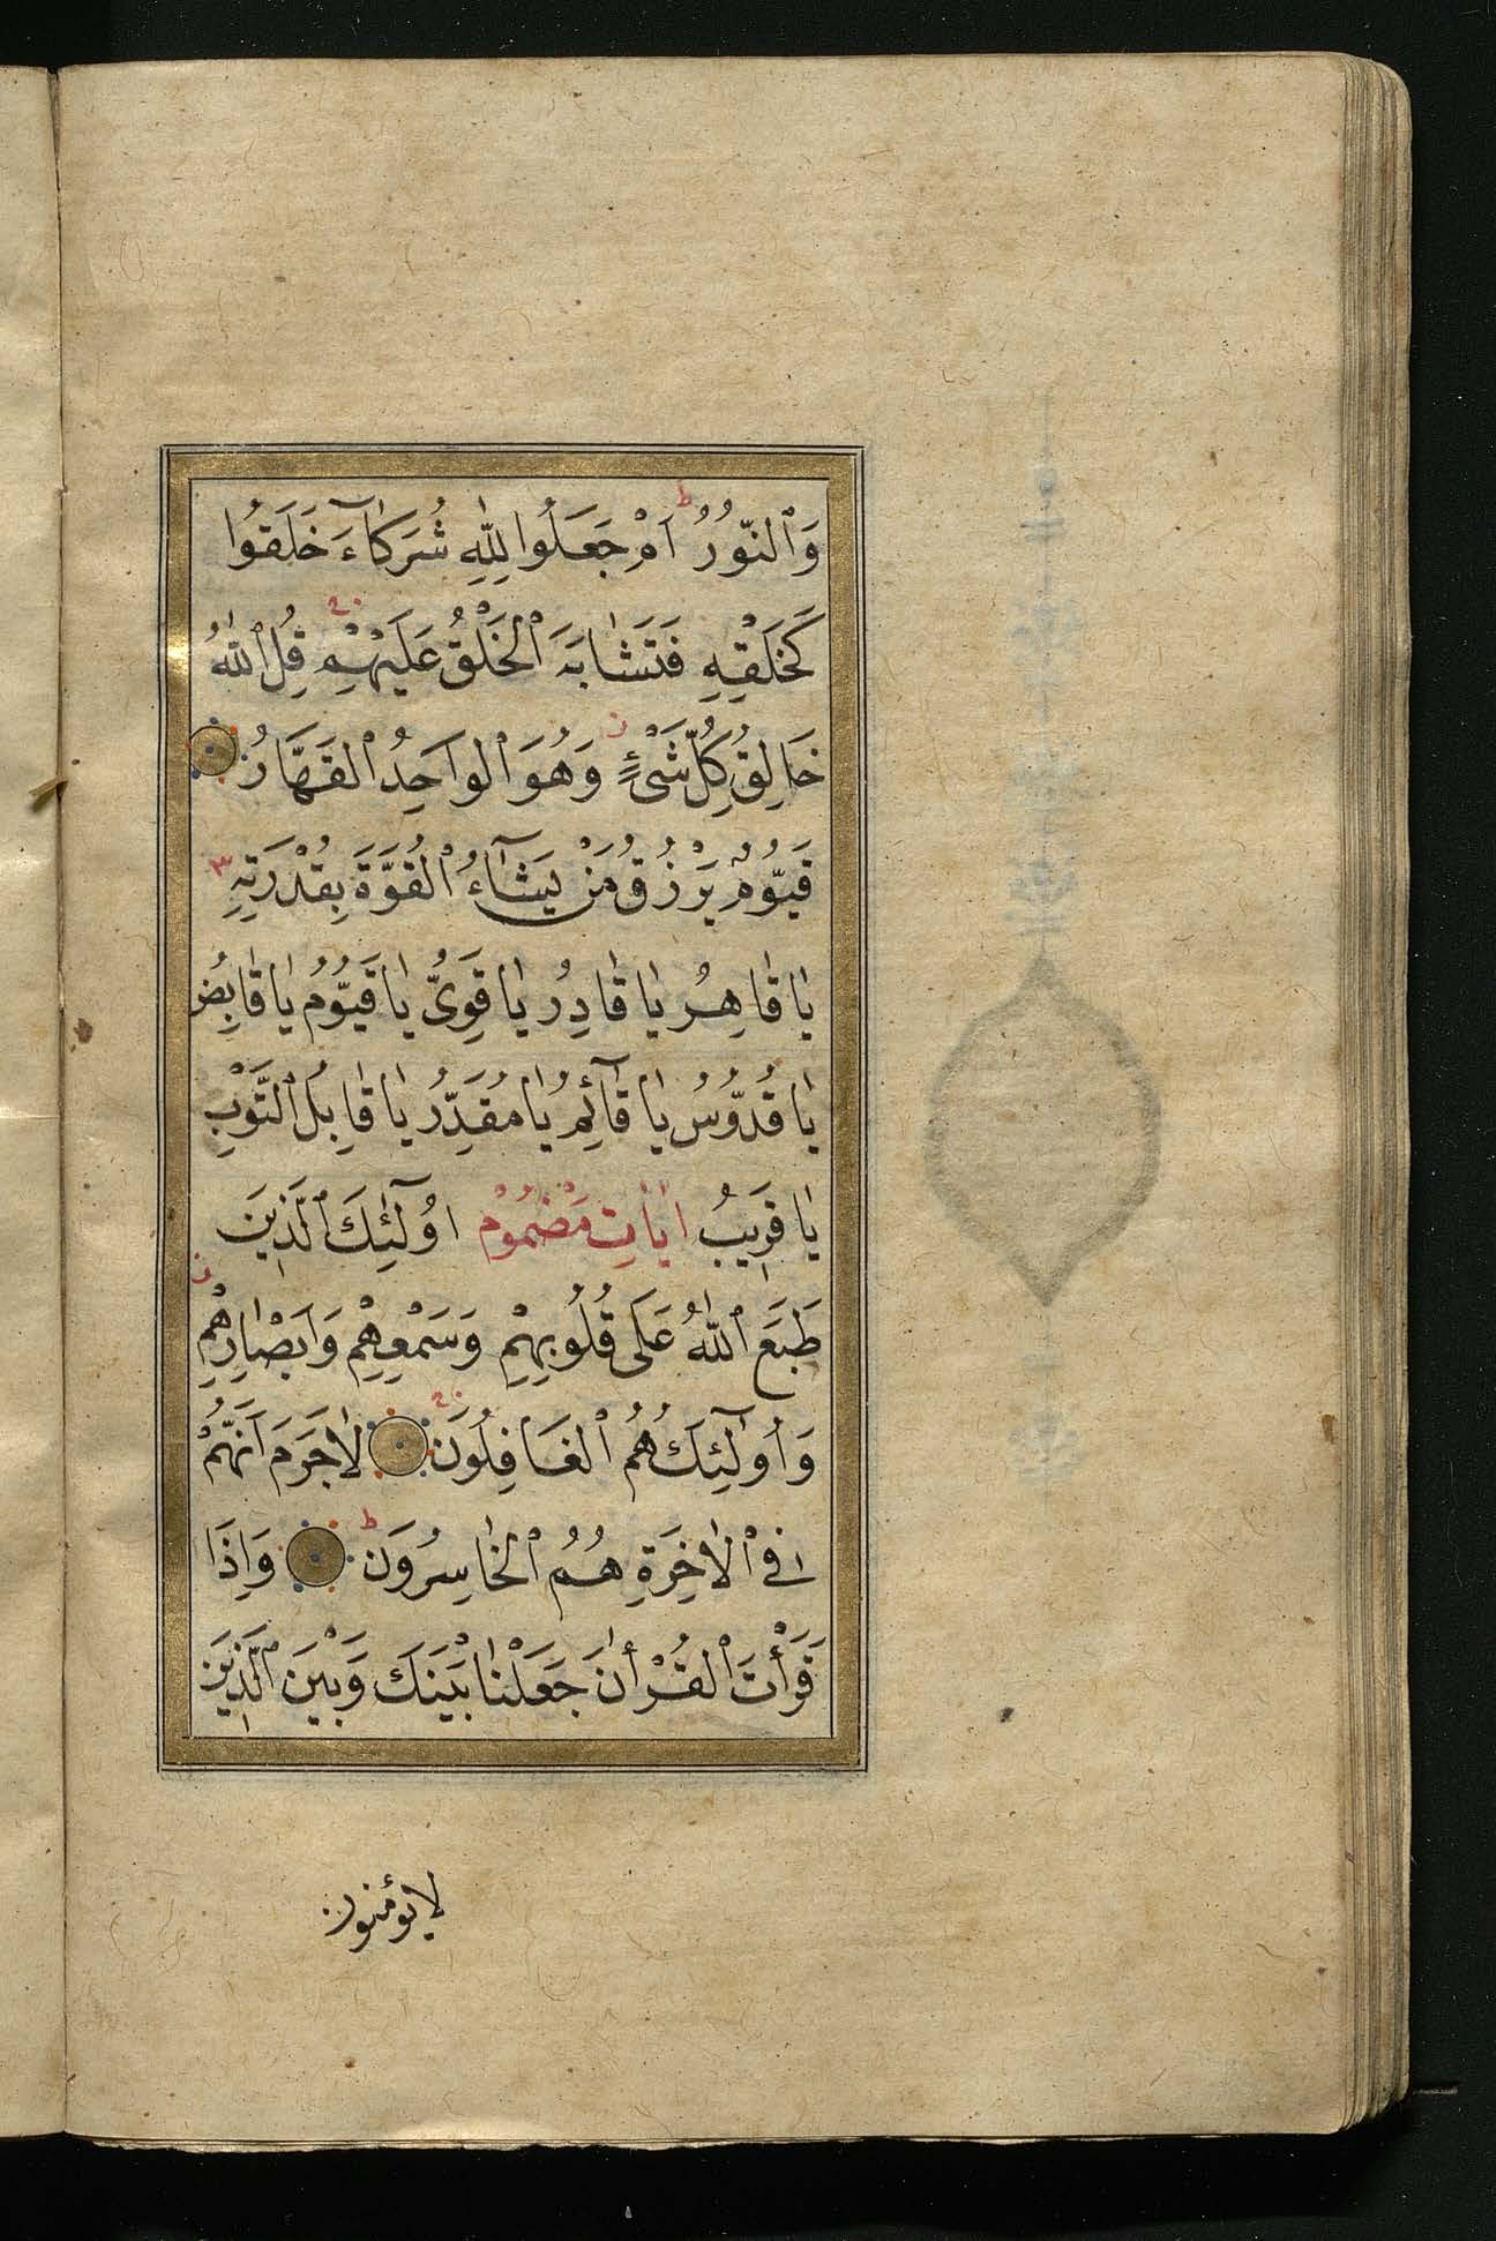 وَٱلنُّورُ ط اَمْ جَعَلُوا لِلّٰهِ شُرَكَآءَ خَلَقُوا
كَخَلْقِهِ فَتَشَابَهَ ٱلْخَلْقُ عَلَيْهِمْ قُلِ ٱللّٰهُ
خَالِقُ كُلِّ شَیْءٍ ز وَهُوَ ٱلْوَاحِدُ ٱلْقَهَّارُ
قَيُّومٌ يَرْزُقُ مَنْ يَشَآءُ ٱلْقُوَّةَ بِقُدْرَتِهِ ٣
يَا قَاهِرُ يَا قَادِرُ يَا قَوِیُّ يَا قَيُّومُ يَا قَابِضُ
يَا قُدُّوسُ يَا قَآئِمُ يَا مُقَدِّرُ يَا قَابِلَ ٱلتَّوْبِ
يَا قَرِيبُ اٰيَاتِ مَضْمُومْ اُولٰٓئِكَ ٱلَّذِينَ
طَبَعَ ٱللّٰهُ عَلَى قُلُوبِهِمْ وَسَمْعِهِمْ وَاَبْصَارِهِمْ ز
وَاُولٰٓئِكَ هُمُ ٱلْغَافِلُونَ لَاجَرَمَ اَنَّهُمْ
فِى ٱلْاٰخِرَةِ هُمُ ٱلْخَاسِرُونَ ط وَاِذَا
قَرَأْتَ ٱلْقُرْأٰنَ جَعَلْنَا بَيْنَكَ وَبَيْنَ ٱلَّذِينَ
لايؤمنون